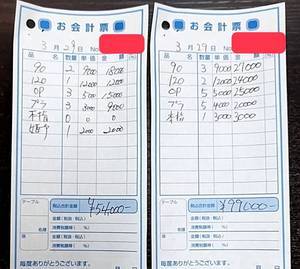 お会計票
3月29日 No.
品名 数量 単価 金額
90 2 9000 18000
120 1 12000 12000
OP 3 5000 15000
プラ 3 3000 9000
本指 0
姫予 1 2000 2000
テーブル
税込合計金額 ¥54,000-
金額(税抜・税込)
消費税額等( %)
金額(税抜・税込)
消費税額等( %)
毎度ありがとうございます。
お会計票
3月29日 No.
品名 数量 単価 金額
90 3 9000 27000
120 2 12000 24000
OP 5 5000 25000
プラ 5 4000 20000
本指 1 3000 3000
テーブル
税込合計金額 ¥99000-
金額(税抜・税込)
消費税額等( %)
金額(税抜・税込)
消費税額等( %)
毎度ありがとうございます。